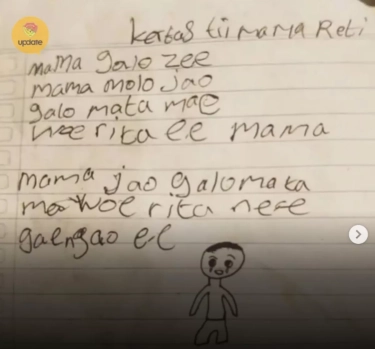 update
kertas tii mama Reti
mama galo zee
mama molo jao
galo mata mae
woe rita ee mama
mama jao galo mata
mae woe rita ne ee
gaengao ee